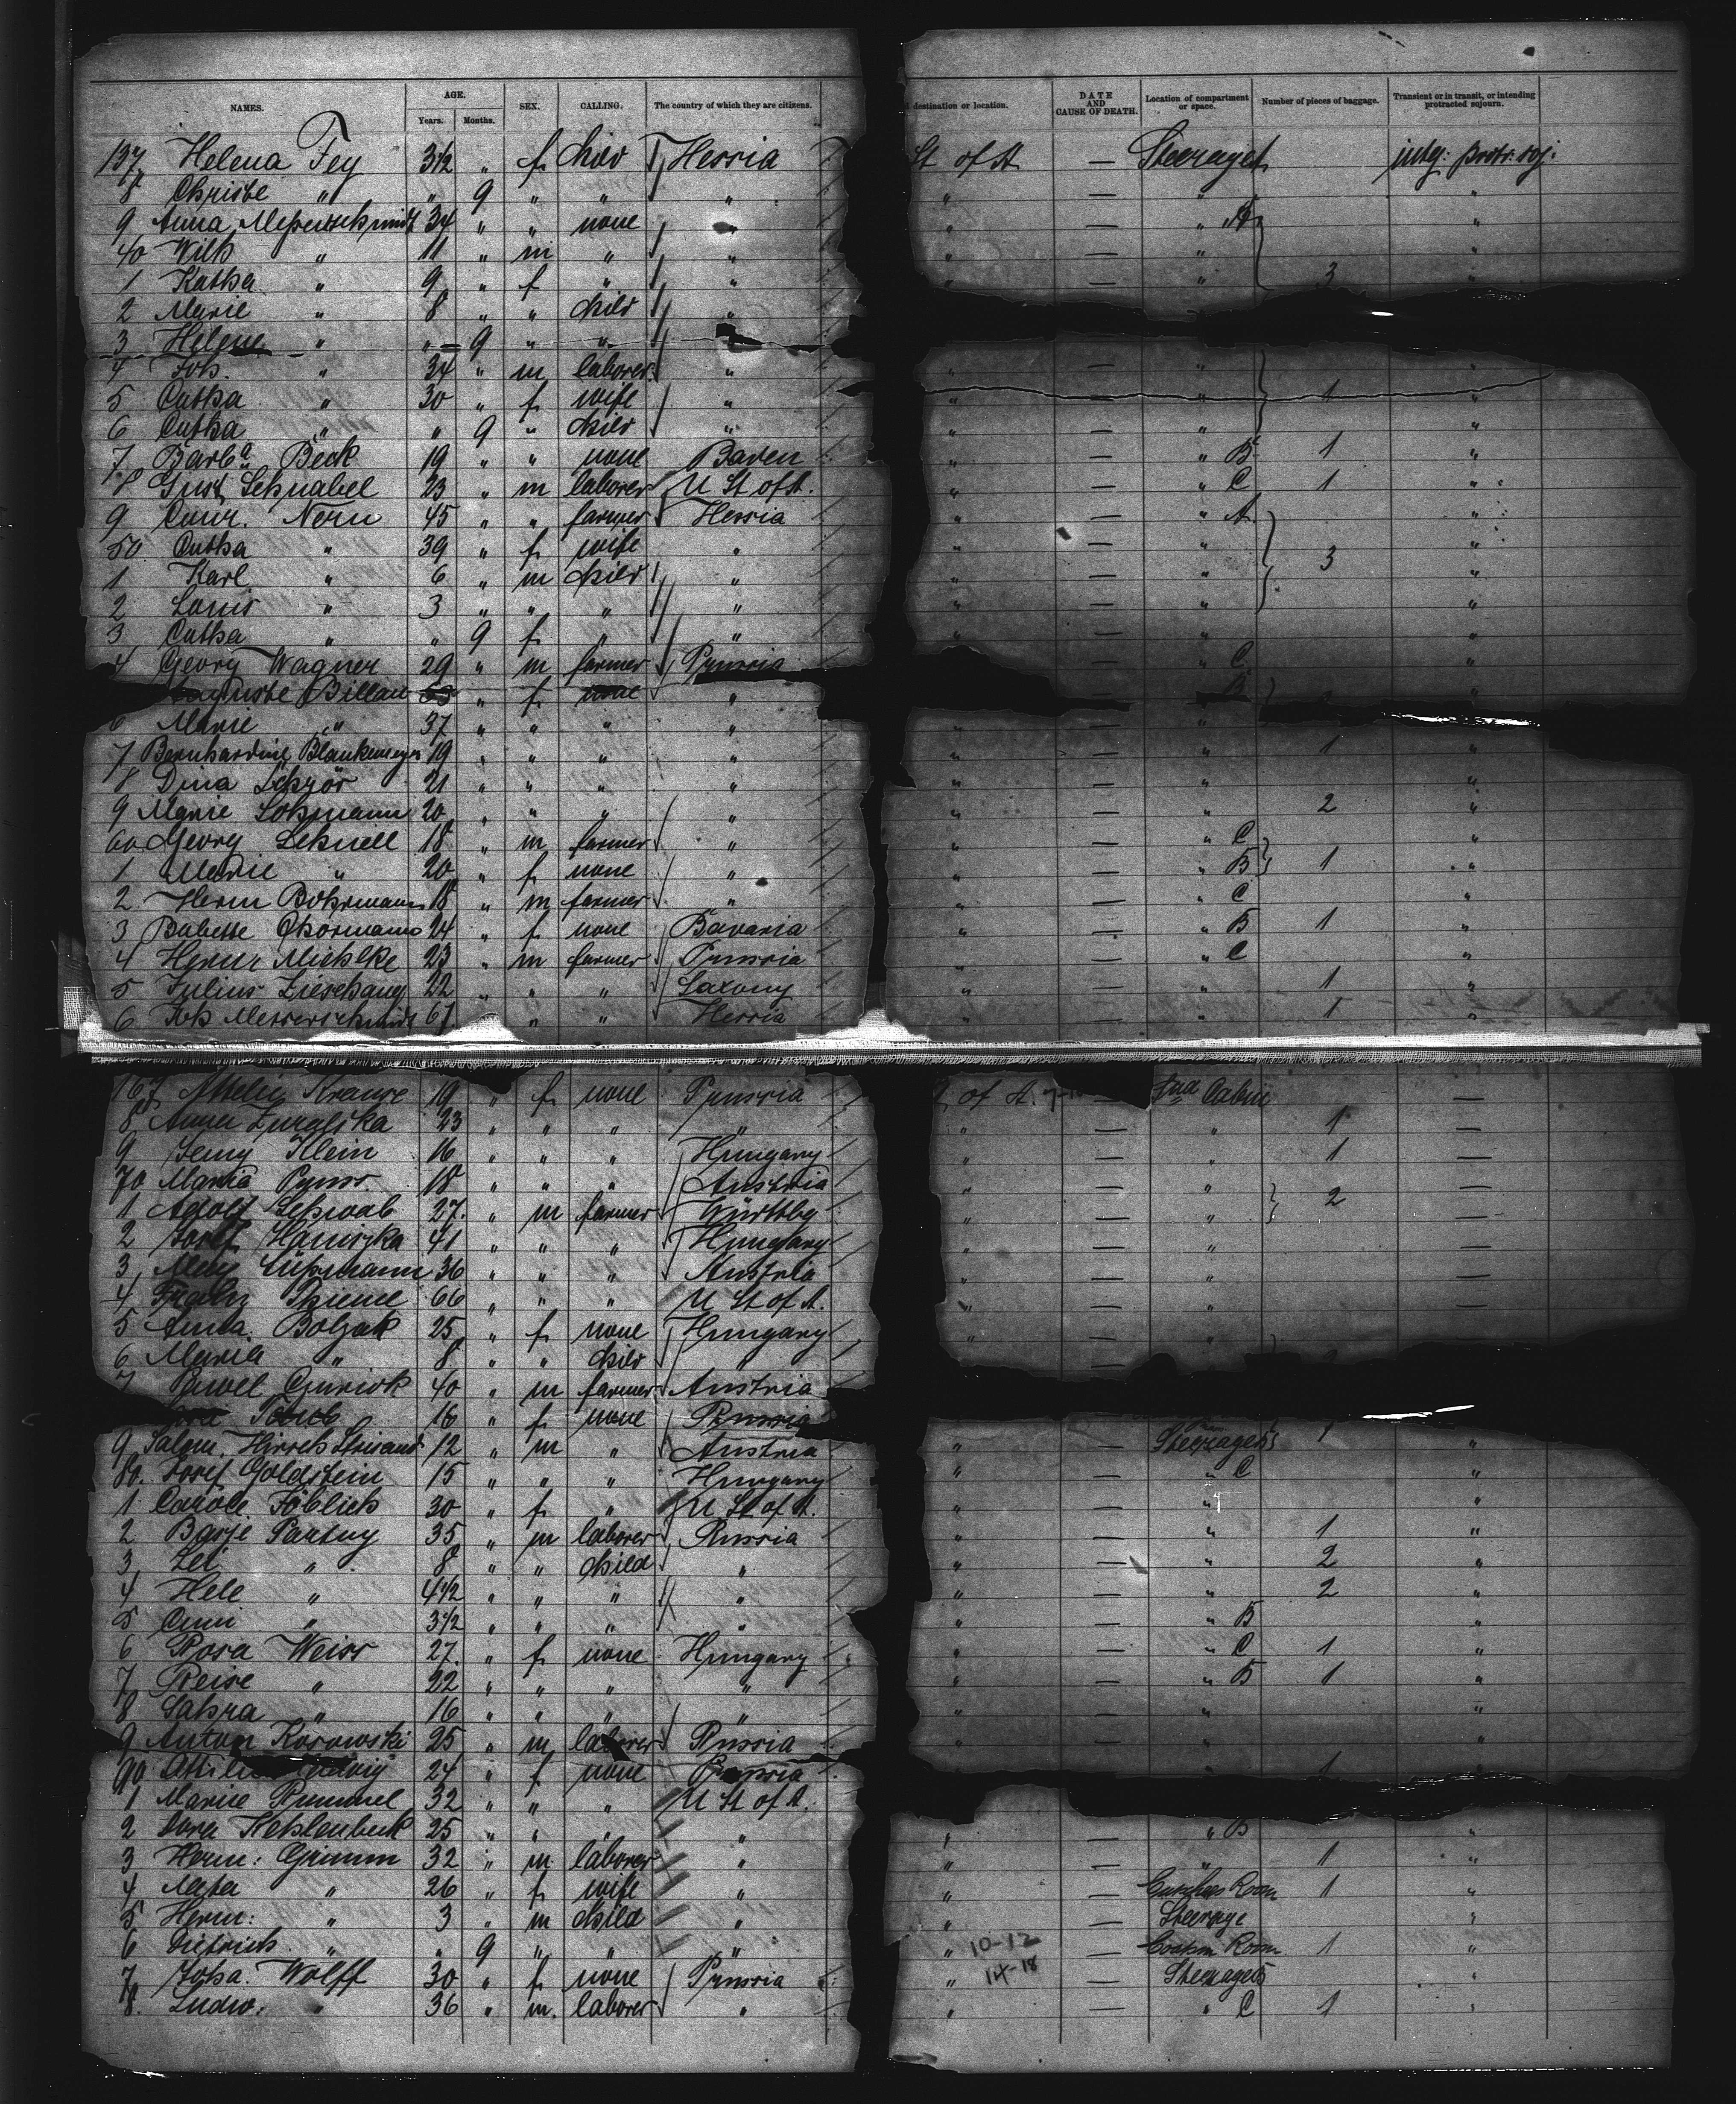 NAMES. AGE. Years. Months. SEX. CALLING. The country of which they are citizens. destination or location. DATE AND CAUSE OF DEATH. Location of compartment or space. Number of pieces of baggage. Transient or in transit, or intending protracted sojourn.
137 Helena Fey 3 1/2 " f child Hessia St of A — Steerage intg: protr: soj:
8 Christe " " 9 " " " " — " "
9 Anna 34 " " none " " — " "
40 Wilh " 11 " m " " " — " "
1 Katha " 9 " f " " " — " 3 "
2 Marie " 8 " " child "
3 Helene " " 9 " " "
4 Joh. " 34 " m laborer " " — " "
5 Catha " 30 " f wife " " — " 1 "
6 Catha " " 9 " child " " — " "
7 Barba Beck 19 " " none Baden " — " B 1 "
8 Gust Schnabel 23 " m laborer U St of A. " — " C 1 "
9 Conr. Nern 45 " " farmer Hessia " — " A "
50 Catha " 39 " f wife " " — " "
1 Karl " 6 " m child " " — " 3 "
2 Louis " 3 " " " " " — " "
3 Catha " " 9 f " " " — "
4 Georg Wagner 29 " m farmer Prussia " — " C "
Auguste Billau " f none " B
6 Marie " 37 " " " " " — "
7 Bernhardine Blankemeyer 19 " " " " " — " 1 "
8 Dina 21 " " " " " — " "
9 Marie Lohmann 20 " " " " " — " 2 "
60 Georg Schnell 18 " m farmer " " — " C "
1 Marie " 20 " f none " " — " B 1 "
2 Herm Bohrmann 18 " m farmer " " — " C "
3 Babette 24 " f none Bavaria " — " B 1 "
4 Herm Miehlke 23 " m farmer Prussia " — " C "
5 Julius Zieschang 22 " " " Saxony " — " 1 "
6 Joh Messerschmidt 67 " " Hessia " — " 1 "
167 Krause 19 " f none Prussia of A. — 2nd Cabin —
8 Anna 23 " " " " " — " 1 —
9 Jenny Klein 16 " " " Hungary " — " 1 —
70 Maria 18 " " " Austria " — " —
1 Adolf Schwab 27 " m farmer Württbg " — " 2 —
2 Josef 41 " " " Hungary " — " —
3 36 " " " Austria " — " —
4 66 " " " U St of A. " — " —
5 Anna 25 " f none Hungary " — " —
6 Maria " 8 " " child "
7 Pawel 40 " m farmer Austria
16 " f none Prussia
9 Salom. Hirsch 12 " m " Austria " — Steerage "
80 Josef Goldstein 15 " " " Hungary " — " C "
1 30 " f " U St of A. " — " "
2 35 " m laborer Russia " — " 1 "
3 " 8 " " child " " — " 2 "
4 Hele " 4 1/2 " " " " " — " 2 "
5 " 3 1/2 " " " " " — " B "
6 Rosa Weiss 27 " f none Hungary " — " C 1 "
7 Reise " 22 " " " " " — " B 1 "
8 " 16 " " " " " — " "
9 Anton Kosowski 25 " m laborer Russia " — " "
90 24 " f none Prussia 1
1 Marie Rummel 32 " " " U St of A.
2 Dora Kehlenbeck 25 " " " " " — " B "
3 Herm: Grimm 32 " m laborer " " — " 1 "
4 Meta " 26 " f wife " " — Room 1 "
5 Herm: " 3 " m child " " — Steerage "
6 Dietrich " " 9 " " " " 10-12 — Room 1 "
7 Joha. Wolff 30 " f none Prussia " 14-18 — Steerage B "
8. Ludw: " 36 " m. laborer " " — " C 1 "